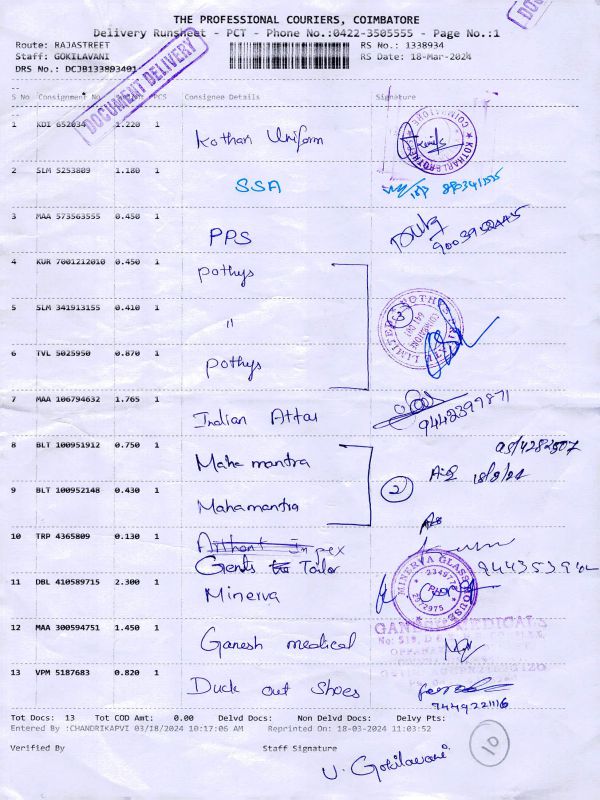 THE PROFESSIONAL COURIERS, COIMBATORE
Delivery Runsheet - PCT - Phone No.:0422-3505555 - Page No.:1
Route: RAJASTREET
RS No.: 1338934
Staff: GOKILAVANI
RS Date: 18-Mar-2024
DRS No.: DCJB133893401
DOCUMENT DELIVERY
DOCUMENT
S No Consignment No PCS Consignee Details Signature
1 KDI 652034 1.220 1 Kothari Uniform
COIMBATORE KOTHARI BROTHERS
2 SLM 5253809 1.180 1 SSA
3 MAA 573563555 0.450 1 PPS
4 KUR 7001212010 0.450 1 Pothys
5 SLM 341913155 0.410 1 "
3
6 TVL 5025950 0.870 1 Pothys
7 MAA 106794632 1.765 1 Indian Attar
9442397871
8 BLT 100951912 0.750 1 Maha mantra
9 BLT 100952148 0.430 1 Mahamantra
2
10 TRP 4365809 0.130 1
Gents Tailor
11 DBL 410589715 2.300 1 Minerva
MINERVA GLASS HOUSE
2349772
2972975
12 MAA 300594751 1.450 1 Ganesh medical
GANESH MEDICALS
13 VPM 5187683 0.820 1 Duck out Shoes
9449221116
Tot Docs: 13 Tot COD Amt: 0.00 Delvd Docs: Non Delvd Docs: Delvy Pts:
Entered By :CHANDRIKAPVI 03/18/2024 10:17:06 AM Reprinted On : 18-03-2024 11:03:52
10
Verified By Staff Signature
V. Gokilavani